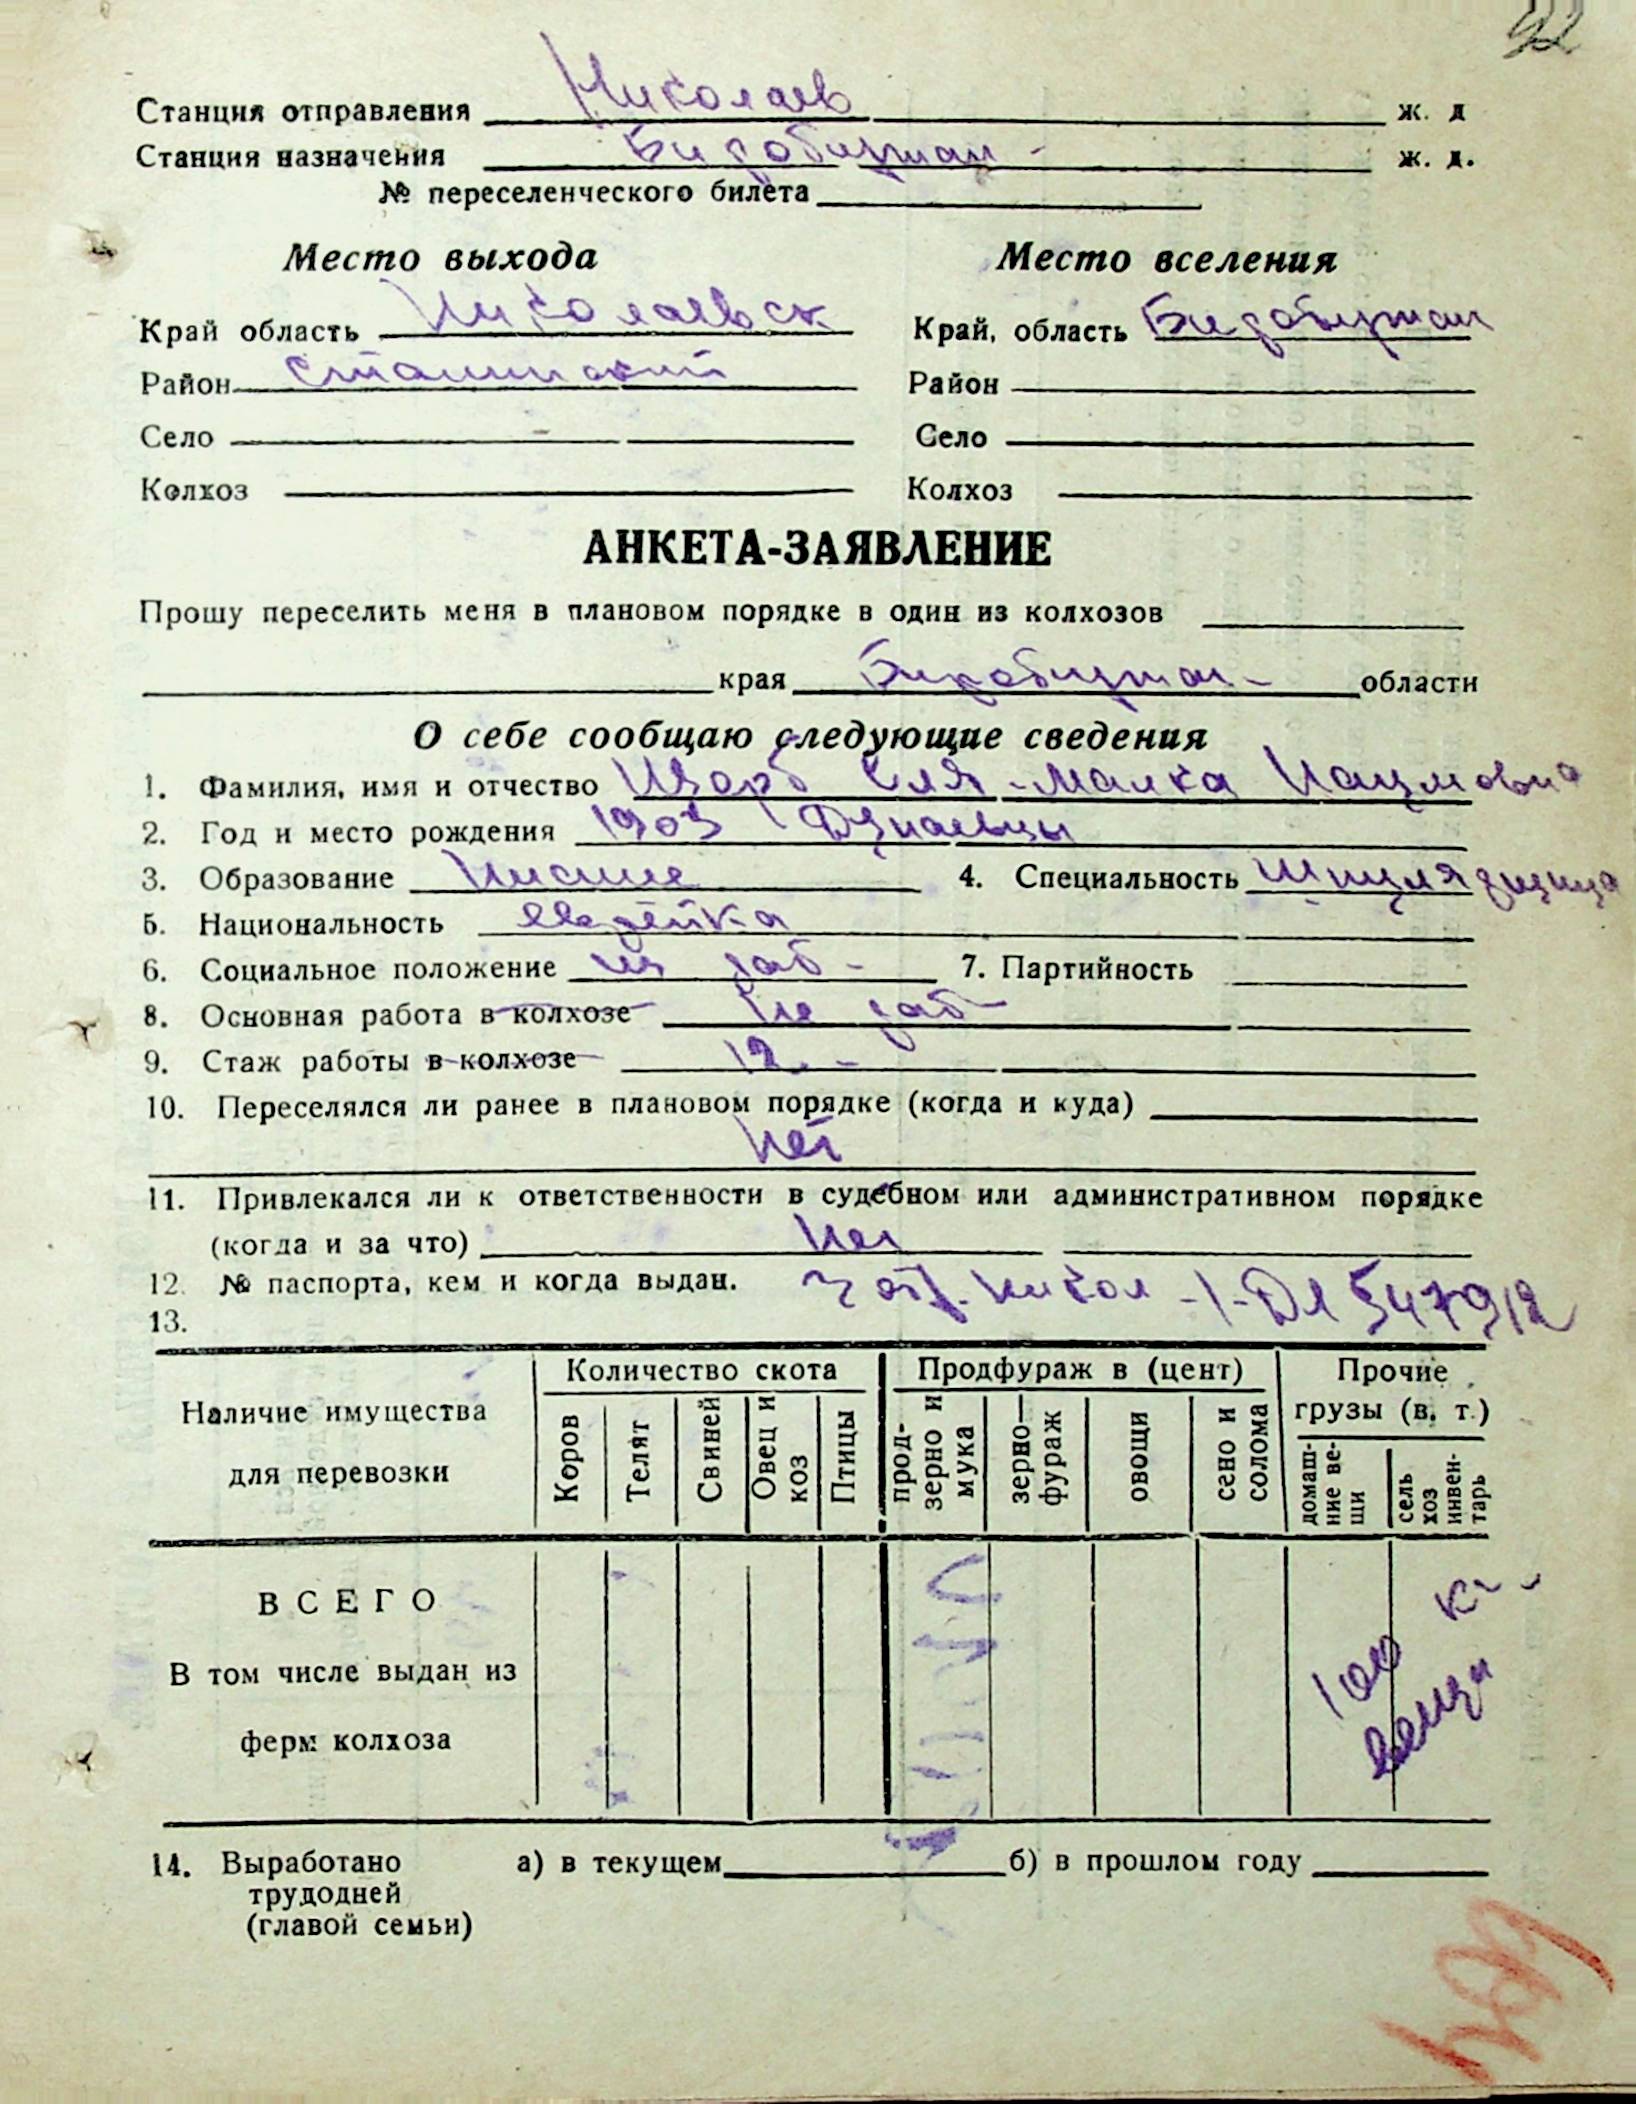 92
Станция отправления Николаев ж. д
Станция назначения Биробиджан - ж. д.
№ переселенческого билета
Место выхода Место вселения
Край область Николаевск Край, область Биробиджан
Район Сталинский Район
Село - Село
Колхоз Колхоз
АНКЕТА-ЗАЯВЛЕНИЕ
Прошу переселить меня в плановом порядке в один из колхозов
края Биробиджан - области
О себе сообщаю следующие сведения
1. Фамилия, имя и отчество -Малка Наумовна
2. Год и место рождения 1903 Дунаевцы
3. Образование Низшее 4. Специальность Шпулядчица
5. Национальность еврейка
6. Социальное положение из раб - 7. Партийность
8. Основная работа в колхозе не раб
9. Стаж работы в колхозе 12 -
10. Переселялся ли ранее в плановом порядке (когда и куда)
Нет
11. Привлекался ли к ответственности в судебном или административном порядке
(когда и за что) Нет
12. № паспорта, кем и когда выдан. отд. Никол 547912
13.
Наличие имущества для перевозки
Количество скота Продфураж в (цент) Прочие грузы (в. т.)
Коров Телят Свиней Овец и коз Птицы прод- зерно и мука зерно— фураж овощи сено и солома домаш- ние ве- щи сель хоз инвен- тарь
ВСЕГО
В том числе выдан из
ферм колхоза
100 кг -
вещи
14. Выработано а) в текущем б) в прошлом году
трудодней
(главой семьи)